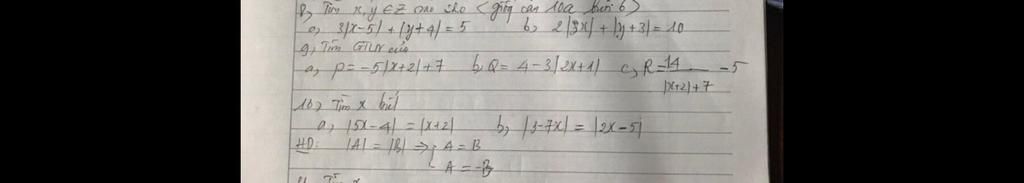 8, Tìm x, y ∈ Z sao cho (giống câu 10a buổi 6)
a, 3|x-5| + |y+4| = 5 b, 2|3x| + |y+3| = 10
9, Tìm GTLN của
a, P = -5|x+2| + 7 b, Q = 4 - 3|2x+1| c, R = 14/(|x+2|+7) - 5
10, Tìm x biết
a, |5x-4| = |x+2| b, |3-7x| = |2x-5|
HD: |A| = |B| ⇒ A = B
A = -B
Tìm x